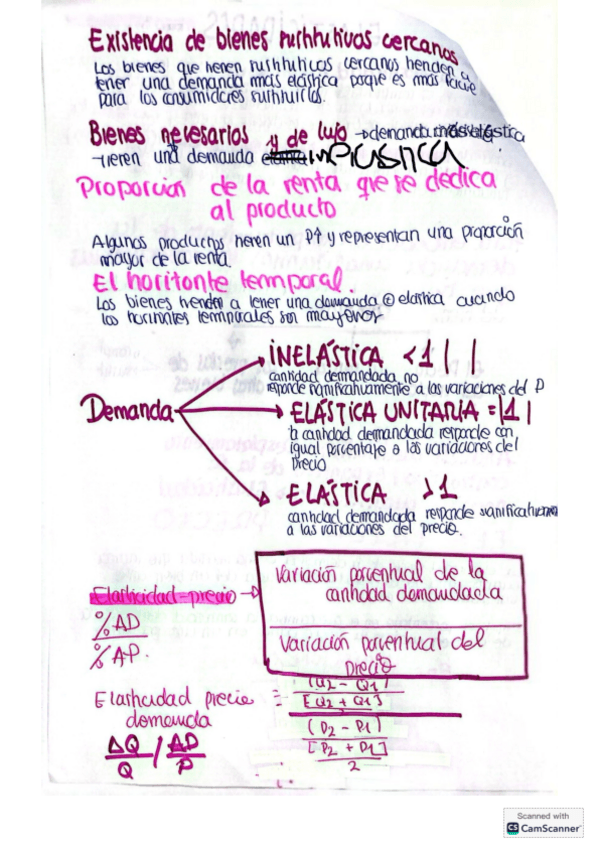 Existencia de bienes sustitutivos cercanos
Los bienes que tienen sustitutivos cercanos tienden a
tener una demanda más elástica porque es más fácil
para los consumidores sustituirlos.
Bienes necesarios y de lujo → demanda más elástica
→ Tienen una demanda elástica INELÁSTICA
Proporción de la renta que se dedica
al producto
Algunos productos tienen un P↑ y representan una proporción
mayor de la renta.
El horitonte temporal.
Los bienes tienden a tener una demanda ⊕ elástica cuando
los horizontes temporales son mayores
INELÁSTICA <1 | |
cantidad demandada no
responde significativamente a las variaciones del P
Demanda
ELÁSTICA UNITARIA = |1|
la cantidad demandada responde con
igual porcentaje a las variaciones del
precio
ELÁSTICA >1
cantidad demandada responde significativamente
a las variaciones del precio.
Elasticidad-precio →
Variación porcentual de la
cantidad demandada
Variación porcentual del
precio
% ΔD
% ΔP.
Elasticidad precio =
demanda
(Q2 - Q1)
[Q2 + Q1]
(P2 - P1)
[P2 + P1]
2
ΔQ / ΔD
Q / P
Scanned with
CS CamScanner